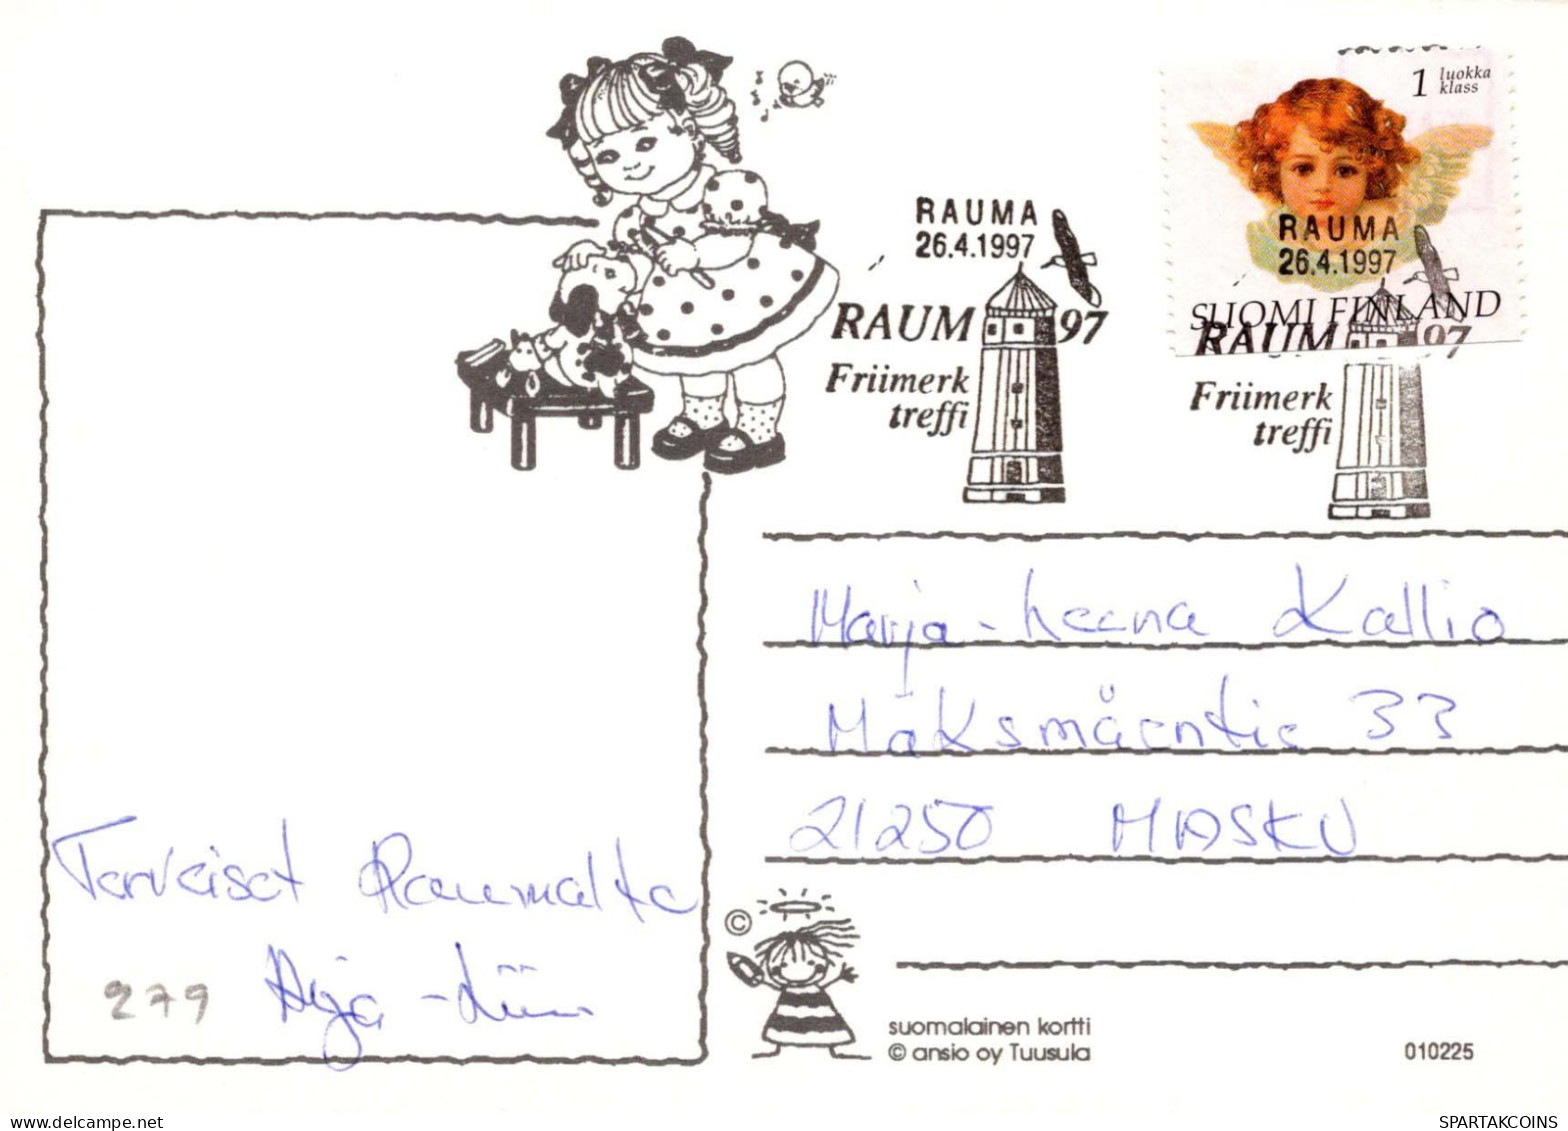 1 luokka
klass
RAUMA
26.4.1997
RAUM 97
Friimerk
treffi
RAUMA
26.4.1997
SUOMI FINLAND
RAUM 97
Friimerk
treffi
Marja-Leena Kallio
Maksmäentie 33
21250 MASKU
Terveiset Raumalta
279
©
suomalainen kortti
© ansio oy Tuusula
010225
delcampe.net
SPARTAKCOINS